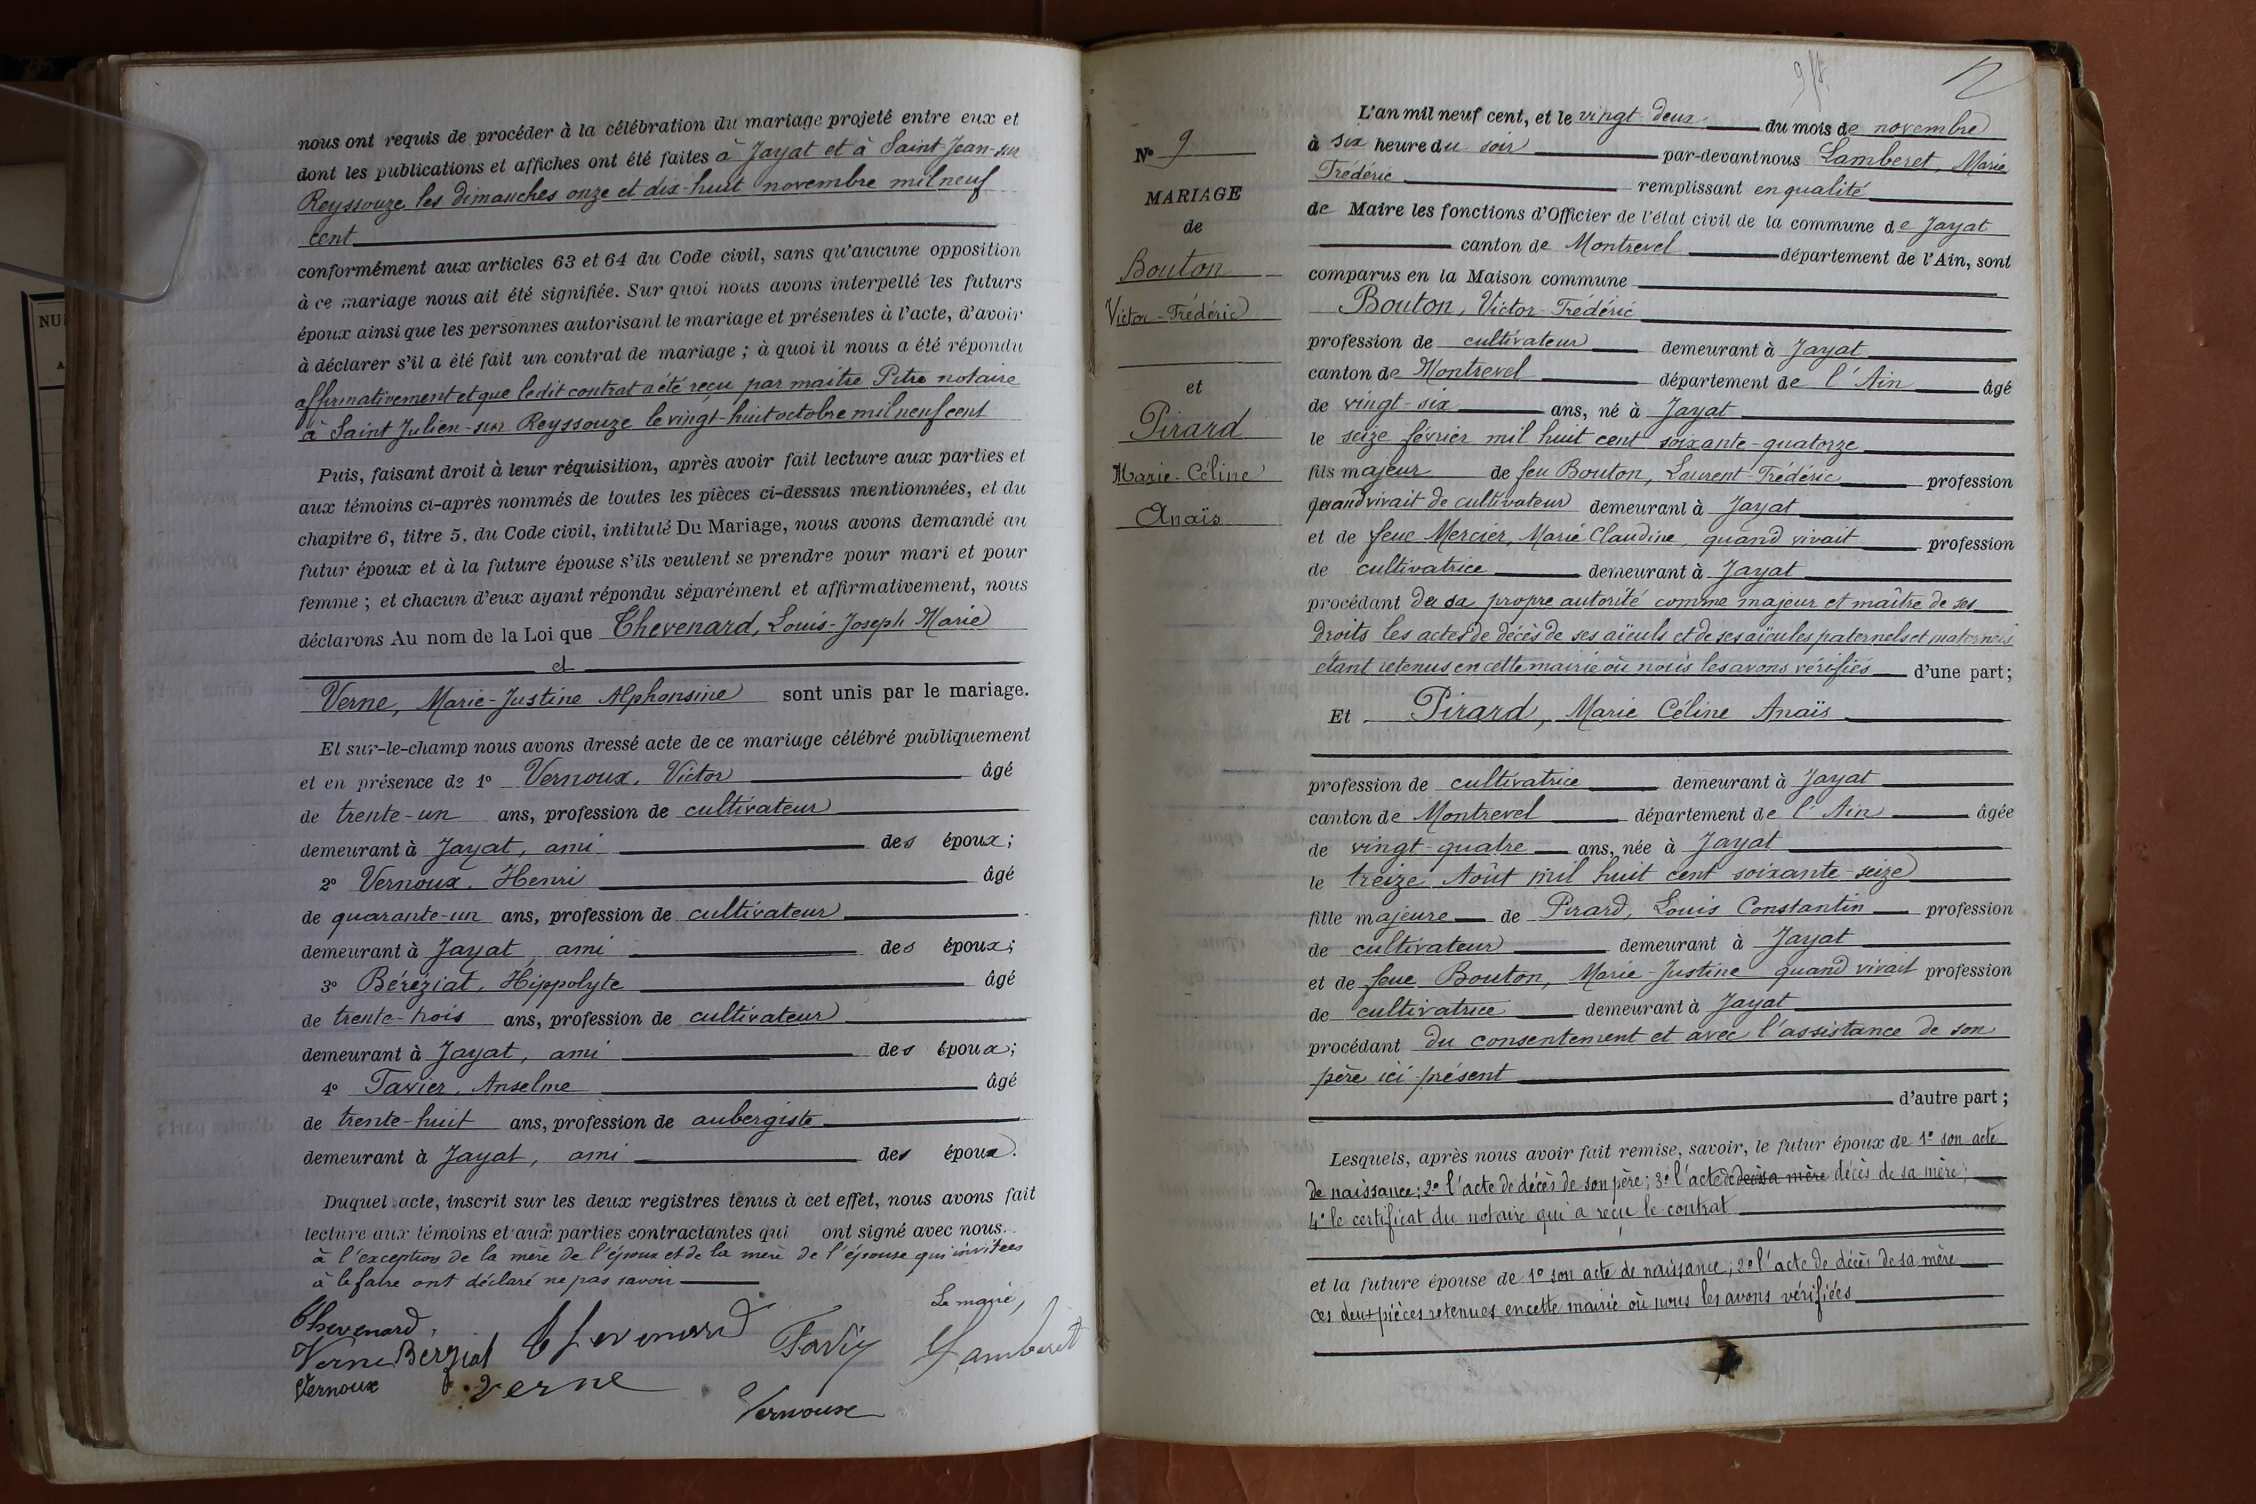 nous ont requis de procéder à la célébration du mariage projeté entre eux et
dont les publications et affiches ont été faites à Jayat et à Saint-Jean-sur
Reyssouze les dimanches onze et dix-huit novembre mil neuf
cent
conformément aux articles 63 et 64 du Code civil, sans qu'aucune opposition
à ce mariage nous ait été signifiée. Sur quoi nous avons interpellé les futurs
époux ainsi que les personnes autorisant le mariage et présentes à l'acte, d'avoir
à déclarer s'il a été fait un contrat de mariage ; à quoi il nous a été répondu
affirmativement et que ledit contrat a été reçu par maître Pitre notaire
à Saint Julien-sur Reyssouze le vingt-huit octobre mil neuf cent
Puis, faisant droit à leur réquisition, après avoir fait lecture aux parties et
aux témoins ci-après nommés de toutes les pièces ci-dessus mentionnées, et du
chapitre 6, titre 5, du Code civil, intitulé Du Mariage, nous avons demandé au
futur époux et à la future épouse s'ils veulent se prendre pour mari et pour
femme ; et chacun d'eux ayant répondu séparément et affirmativement, nous
déclarons Au nom de la Loi que Thevenard, Louis-Joseph Marie
et
Verne, Marie-Justine Alphonsine sont unis par le mariage.
Et sur-le-champ nous avons dressé acte de ce mariage célébré publiquement
et en présence de 1º Vernoux, Victor âgé
de trente-un ans, profession de cultivateur
demeurant à Jayat, ami des époux ;
2º Vernoux, Henri âgé
de quarante-un ans, profession de cultivateur
demeurant à Jayat, ami des époux ;
3º Béréziat, Hippolyte âgé
de trente-trois ans, profession de cultivateur
demeurant à Jayat, ami des époux ;
4º Tavier, Anselme âgé
de trente-huit ans, profession de aubergiste
demeurant à Jayat, ami des époux.
Duquel acte, inscrit sur les deux registres tenus à cet effet, nous avons fait
lecture aux témoins et aux parties contractantes qui ont signé avec nous.
à l'exception de la mère de l'époux et de la mère de l'épouse qui invitées
à le faire ont déclaré ne pas savoir
Le maire,
Thevenard Thevenard Lamberet
Verne Berziat
Vernoux Verne
Vernoux
9
12
Nº 9
MARIAGE
de
Bouton
Victor-Frédéric
et
Pirard
Marie-Céline
Anaïs
L'an mil neuf cent, et le vingt deux du mois de novembre
à six heure du soir par-devant nous Lamberet, Marie
Frédéric remplissant en qualité
de Maire les fonctions d'Officier de l'état civil de la commune de Jayat
canton de Montrevel département de l'Ain, sont
comparus en la Maison commune
Bouton, Victor-Frédéric
profession de cultivateur demeurant à Jayat
canton de Montrevel département de l'Ain âgé
de vingt-six ans, né à Jayat
le seize février mil huit cent soixante-quatorze
fils majeur de feu Bouton, Laurent-Frédéric profession
quand vivait de cultivateur demeurant à Jayat
et de feue Mercier, Marie Claudine, quand vivait profession
de cultivatrice demeurant à Jayat
procédant de sa propre autorité comme majeur et maître de ses
droits les actes de décès de ses aïeuls et de ses aïeules paternels et maternels
étant retenus en cette mairie où nous les avons vérifiés d'une part ;
Et Pirard, Marie Céline Anaïs
profession de cultivatrice demeurant à Jayat
canton de Montrevel département de l'Ain âgée
de vingt-quatre ans, née à Jayat
le treize Août mil huit cent soixante-seize
fille majeure de Pirard, Louis Constantin profession
de cultivateur demeurant à Jayat
et de feue Bouton, Marie-Justine quand vivait profession
de cultivatrice demeurant à Jayat
procédant du consentement et avec l'assistance de son
père ici présent
d'autre part ;
Lesquels, après nous avoir fait remise, savoir, le futur époux de 1º son acte
de naissance ; 2º l'acte de décès de son père ; 3º l'acte de sa mère décès de sa mère ;
4º le certificat du notaire qui a reçu le contrat
et la future épouse de 1º son acte de naissance ; 2º l'acte de décès de sa mère
ces deux pièces retenues en cette mairie où nous les avons vérifiées